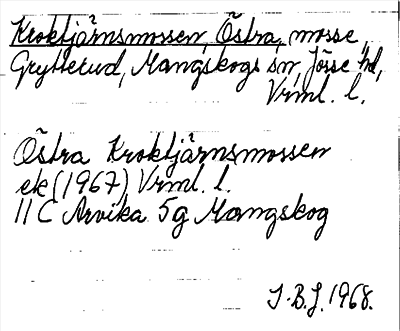 Kroktjärnsmossen, Östra, mosse
Grytterud, Mangskogs sn, Jösse hd,
Vrml. l.
Östra Kroktjärnsmossen
ek (1967) Vrml. l.
11 C Arvika 5g Mangskog
I.B.J. 1968.